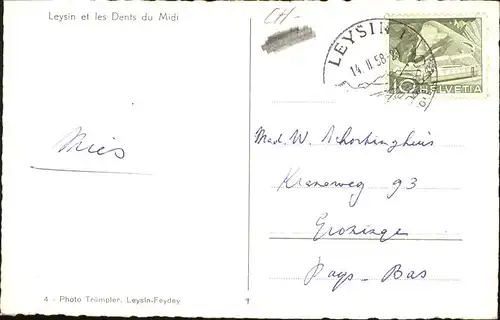 Leysin et les Dents du Midi
CH-
LEYSIN
14.II.58
10 HELVETIA
Mies
Mad. W. Schortinghuis
Kraneweg 93
Groninge
Pays-Bas
4 - Photo Trümpler, Leysin-Feydey